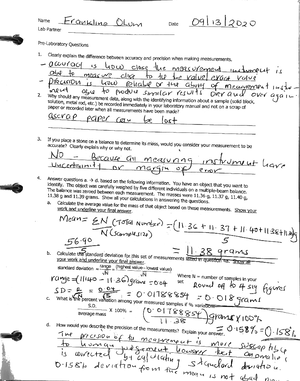 Name Franklina Olum Date 09/13/2020
Lab Partner
Pre-Laboratory Questions
1. Clearly explain the difference between accuracy and precision when making measurements.
accuracy is how close the measurement instrument is
able to measure close to to the value exact value
precision is how reliable or the ability of measurement inst
ument able to produce similar results over and over again
2. Why should any measurement data, along with the identifying information about a sample (solid block,
solution, metal rod, etc.) be recorded immediately in your laboratory manual and not on a scrap of
paper or recorded later when all measurements have been made?
a scrap paper can be lost
3. If you place a stone on a balance to determine its mass, would you consider your measurement to be
accurate? Clearly explain why or why not.
No - Because all measuring instrument leave
uncertainty or margin of error
4. Answer questions a → d. based on the following information. You have an object that you want to
identify. The object was carefully weighed by five different individuals on a multiple-beam balance.
The balance was zeroed between each measurement. The masses were 11.36 g, 11.37 g, 11.40 g,
11.38 g and 11.39 grams. Show all your calculations in answering the questions.
a. Calculate the average value for the mass of that object based on these measurements. Show your
work and underline your final answer.
Mean = ΣN (Total number) = (11.36 + 11.37 + 11.40 + 11.38 + 11.39)
N (Sample size) 5
56.90
5
11.38 grams
b. Calculate the standard deviation for this set of measurements listed in question #4. Show all
your work and underline your final answer.
standard deviation = range (highest value - lowest value)
√N
Where N = number of samples in your
set
range = (11.40 - 11.36) gram = 0.04
Round off to 4 sig figures
SD = R/√N = 0.04/√5 = 0.01788854 = 0.018 grams
c. What is the percent variation among your measured samples if % variation =
S.D. X 100% =
average mass
(0.01788854) grams x 100%
11.38 grams
= 0.158% = 0.158%
d. How would you describe the precision of the measurements? Explain your answer.
The precision of to measurement is more susceptible
to human judgement however best
is corrected by calculating standard deviation.
0.158% deviation from the mean is not